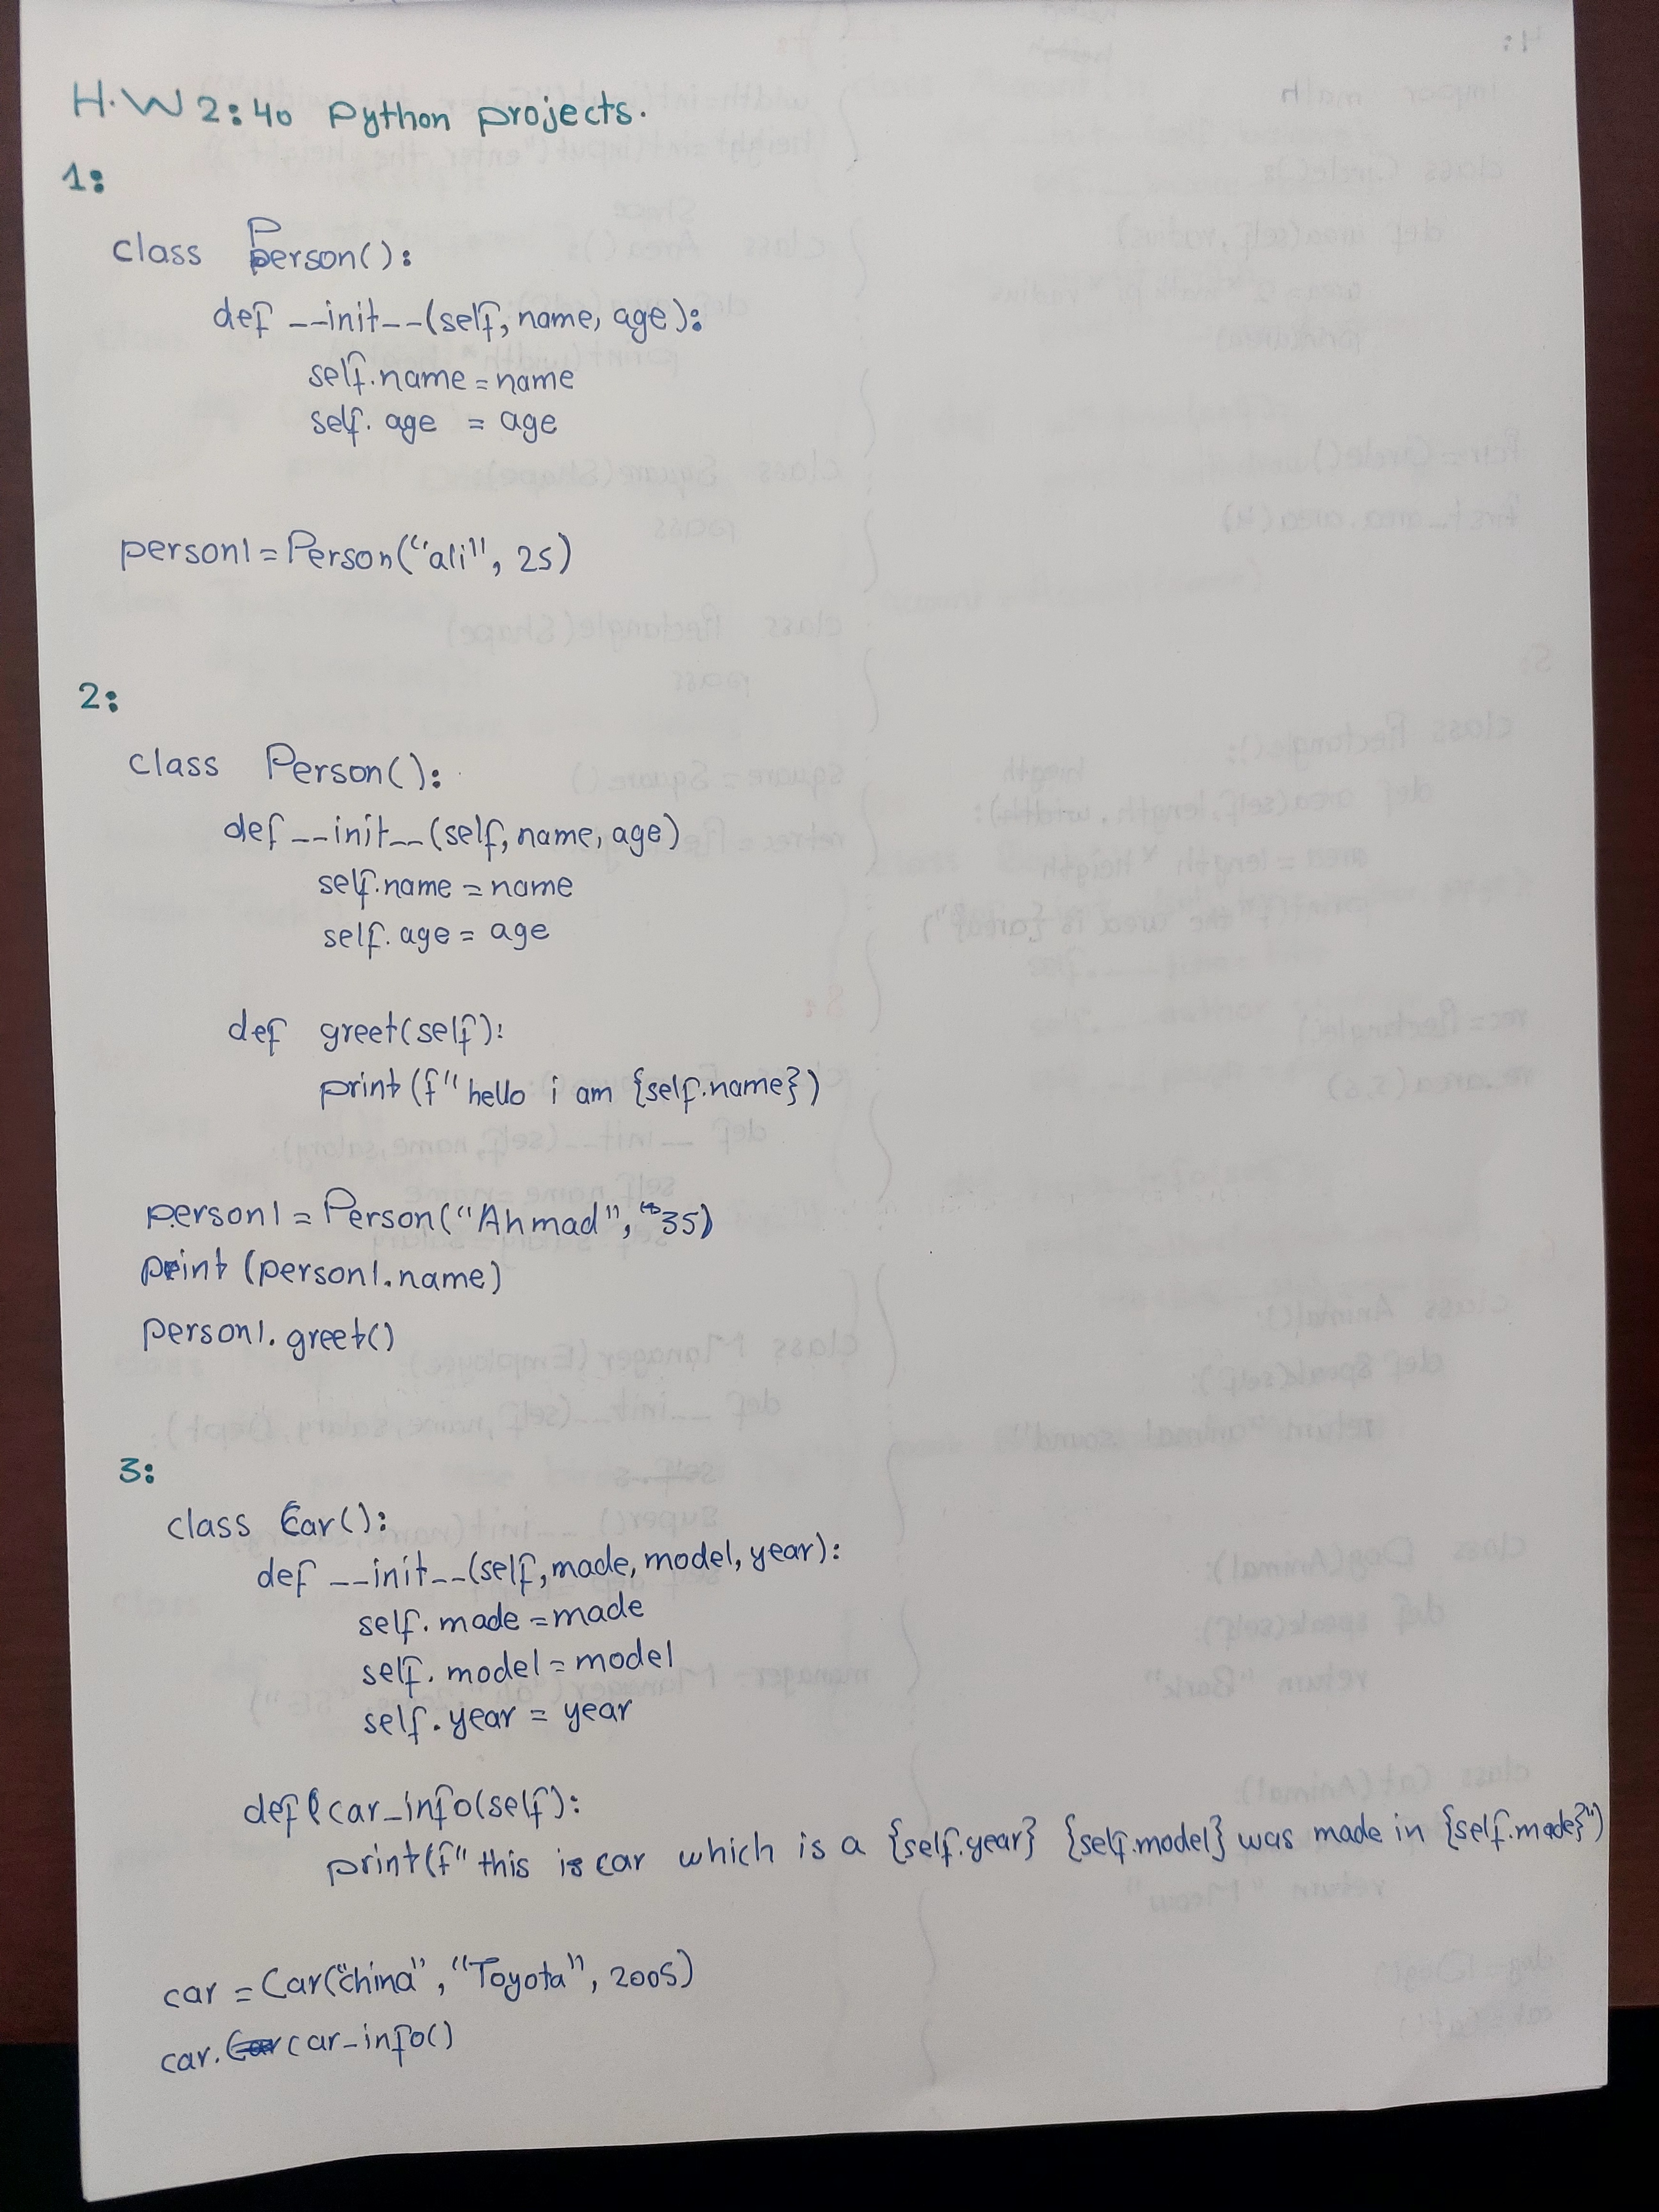 H.W 2: 40 Python projects.
1:
class Person():
def __init__(self, name, age):
self.name = name
self.age = age
person1 = Person("ali", 25)
2:
class Person():
def __init__(self, name, age)
self.name = name
self.age = age
def greet(self):
print(f"hello i am {self.name})
person1 = Person("Ahmad", 35)
print(person1.name)
person1.greet()
3:
class Car():
def __init__(self, made, model, year):
self.made = made
self.model = model
self.year = year
def car_info(self):
print(f"this is car which is a {self.year} {self.model} was made in {self.made}")
car = Car("china", "Toyota", 2005)
car.car_info()